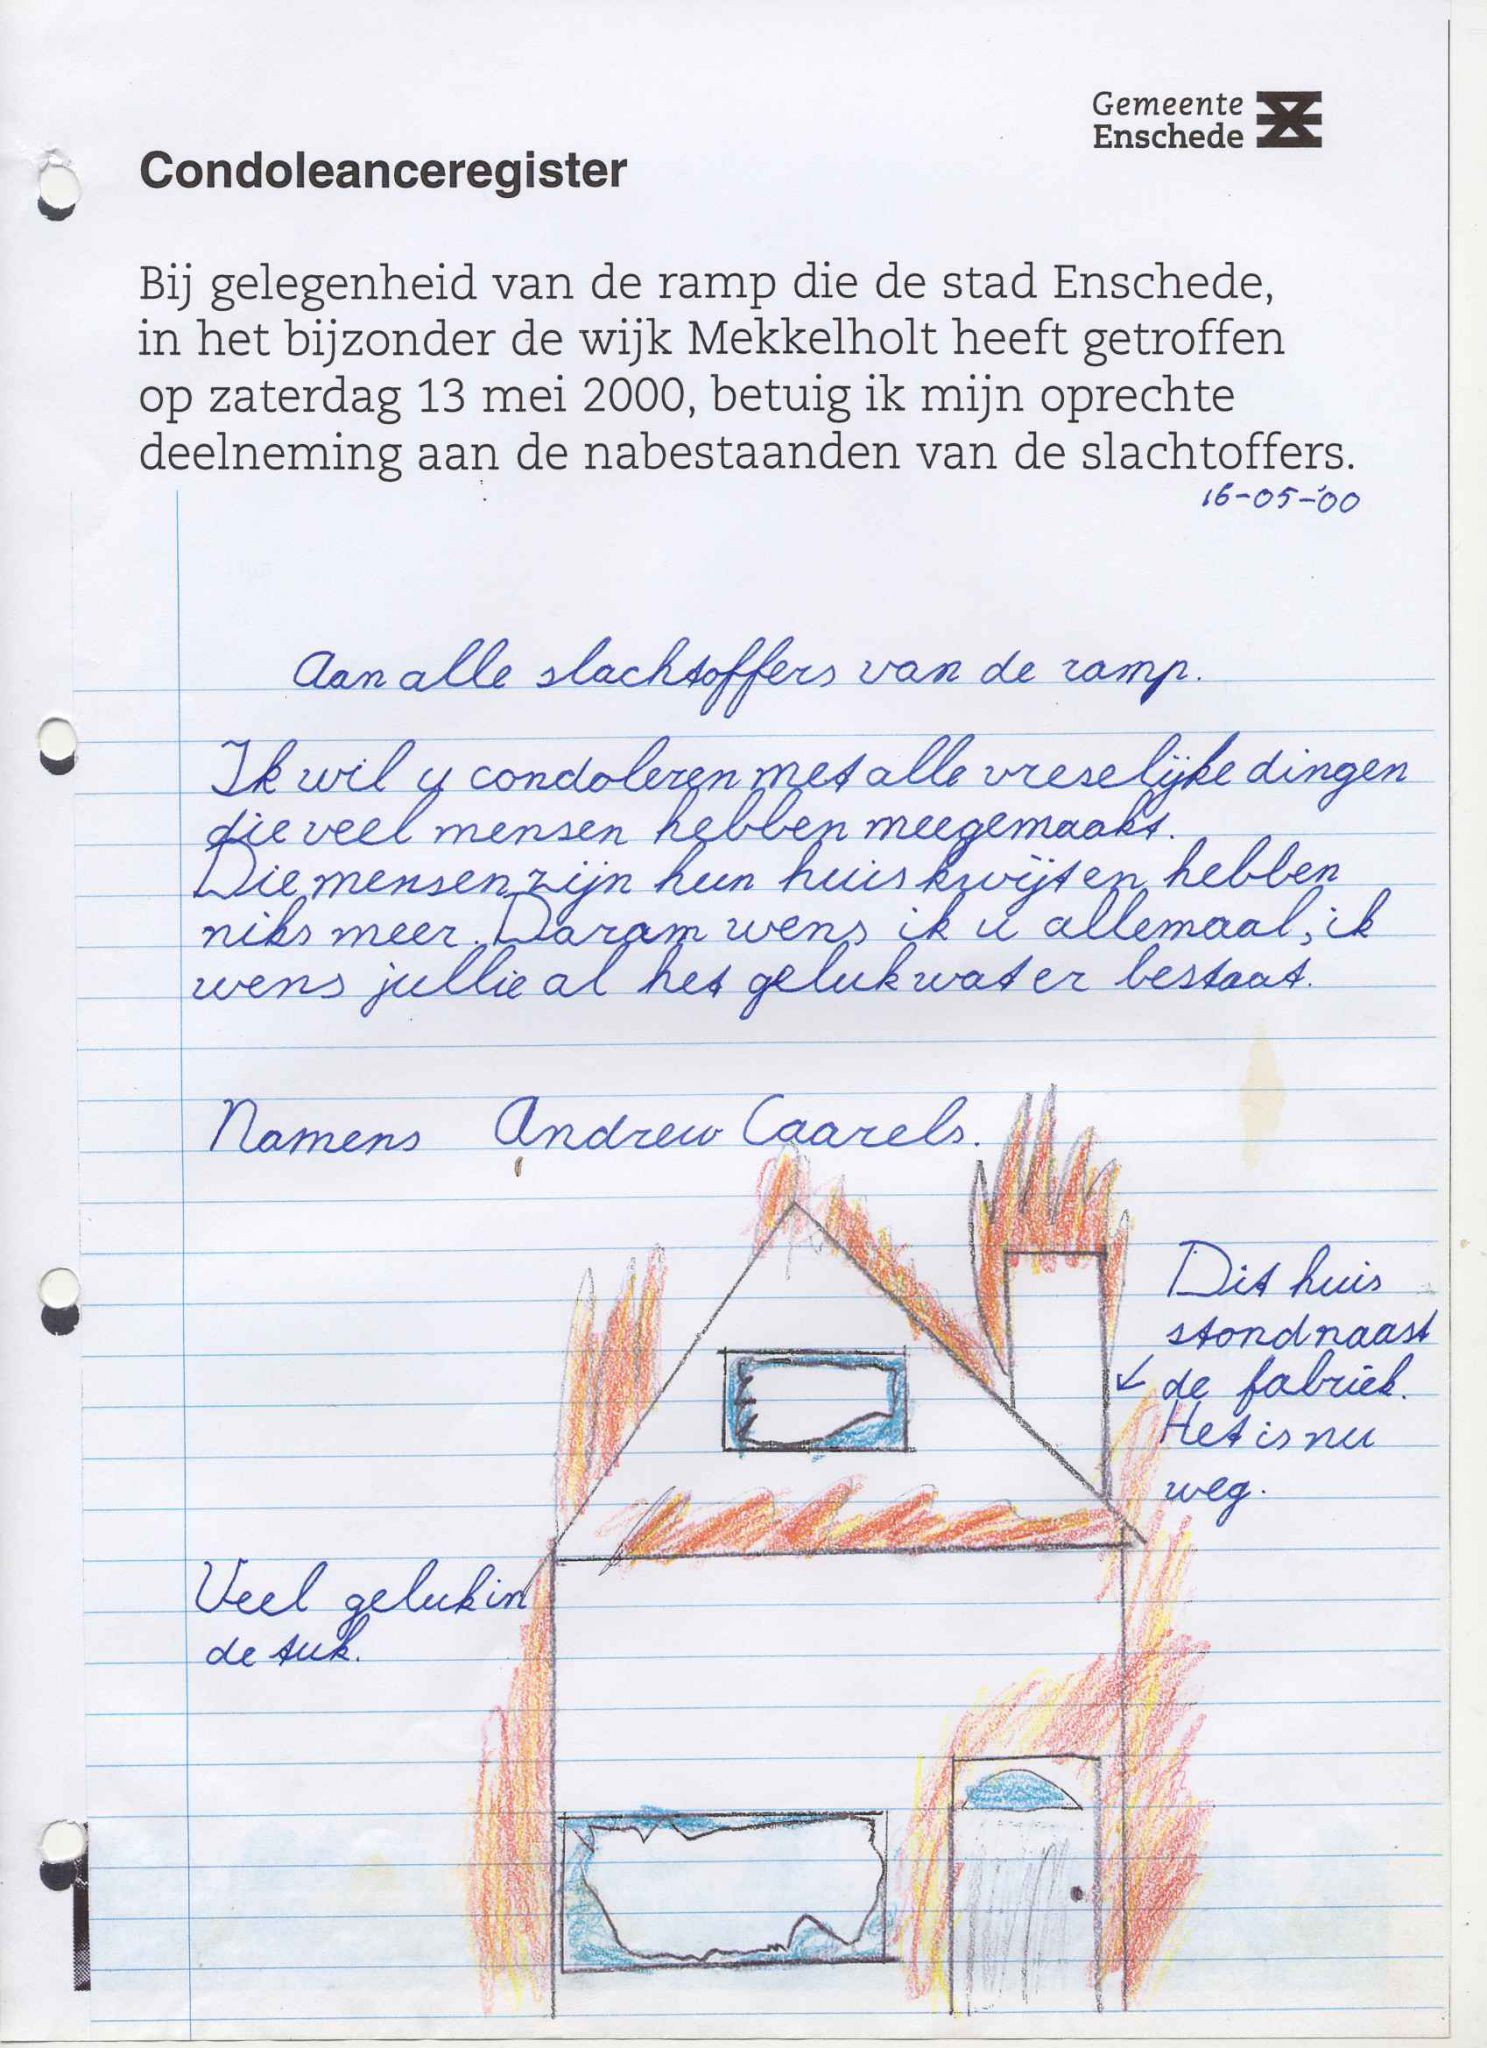 Gemeente
Enschede
Condoleanceregister
Bij gelegenheid van de ramp die de stad Enschede,
in het bijzonder de wijk Mekkelholt heeft getroffen
op zaterdag 13 mei 2000, betuig ik mijn oprechte
deelneming aan de nabestaanden van de slachtoffers.
16-05-'00
Aan alle slachtoffers van de ramp.
Ik wil u condoleren met alle vreselijke dingen
die veel mensen hebben meegemaakt.
Die mensen zijn hun huis kwijt en hebben
niks meer. Daram wens ik u allemaal, ik
wens jullie al het geluk wat er bestaat.
Namens Andrew Caarels.
Dit huis
stond naast
de fabriek.
Het is nu
weg.
Veel geluk in
de tuk.